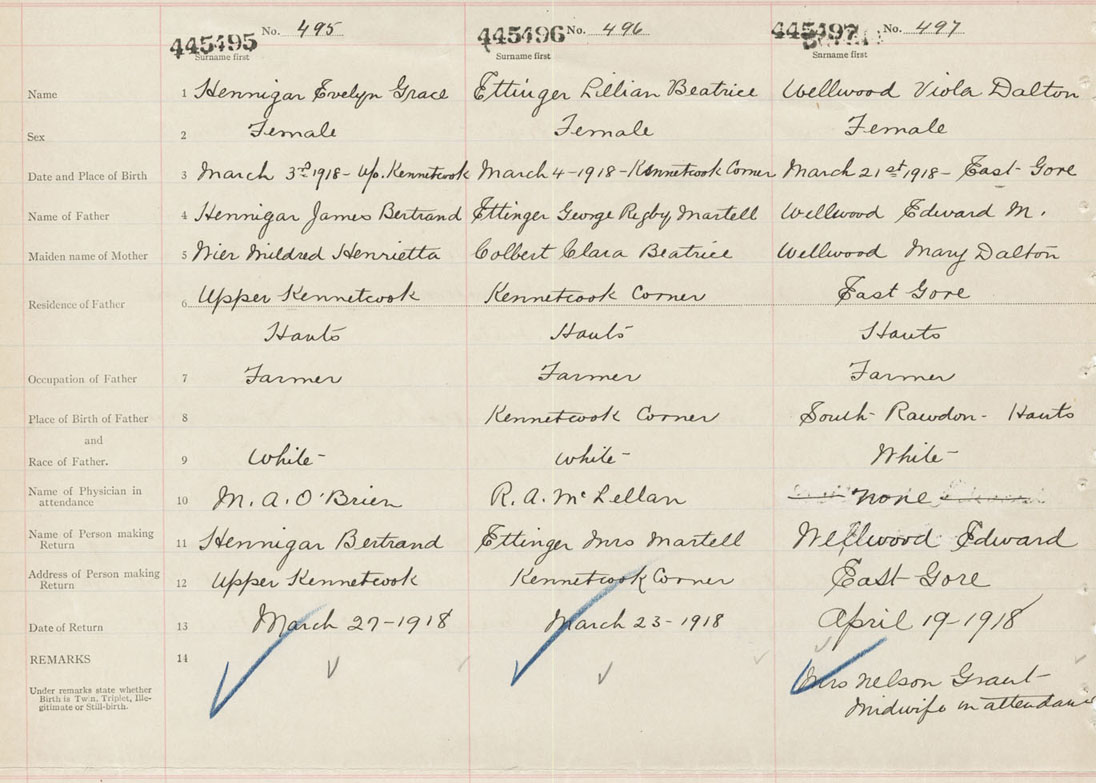 445495 No. 495 445496 No. 496 445497 No. 497
Surname first Surname first Surname first
Name 1 Hennigar Evelyn Grace Ettinger Lillian Beatrice Wellwood Viola Dalton
Sex 2 Female Female Female
Date and Place of Birth 3 March 3rd 1918 - Up. Kennetcook March 4 - 1918 - Kennetcook Corner March 21st 1918 - East Gore
Name of Father 4 Hennigar James Bertrand Ettinger George Rigby Martell Wellwood Edward M.
Maiden name of Mother 5 Wier Mildred Henrietta Colbert Clara Beatrice Wellwood Mary Dalton
Residence of Father 6 Upper Kennetcook Kennetcook Corner East Gore
Hants Hants Hants
Occupation of Father 7 Farmer Farmer Farmer
Place of Birth of Father 8 Kennetcook Corner South Rawdon - Hants
and
Race of Father. 9 White White White
Name of Physician in
attendance 10 M. A. O'Brien R. A. McLellan none
Name of Person making
Return 11 Hennigar Bertrand Ettinger Mrs Martell Wellwood Edward
Address of Person making
Return 12 Upper Kennetcook Kennetcook Corner East Gore
Date of Return 13 March 27 - 1918 March 23 - 1918 April 19 - 1918
REMARKS 14
Under remarks state whether
Birth is Twin, Triplet, Ille-
gitimate or Still-birth.
Mrs Nelson Grant -
Midwife in attendance